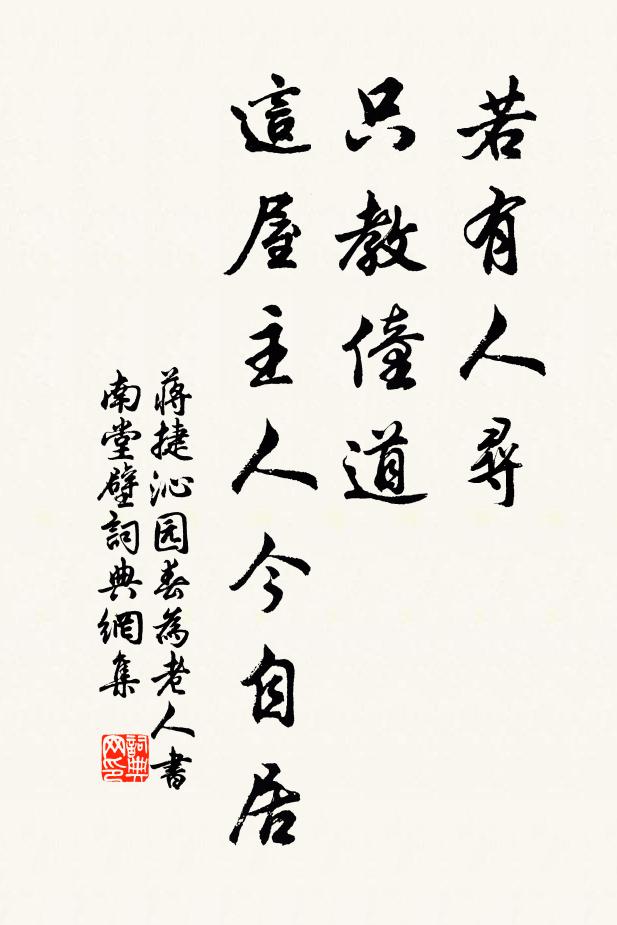 若有人尋
只教僮道
這屋主人今自居
蔣捷沁园春為老人書
南堂壁詞典網集
詞典网印